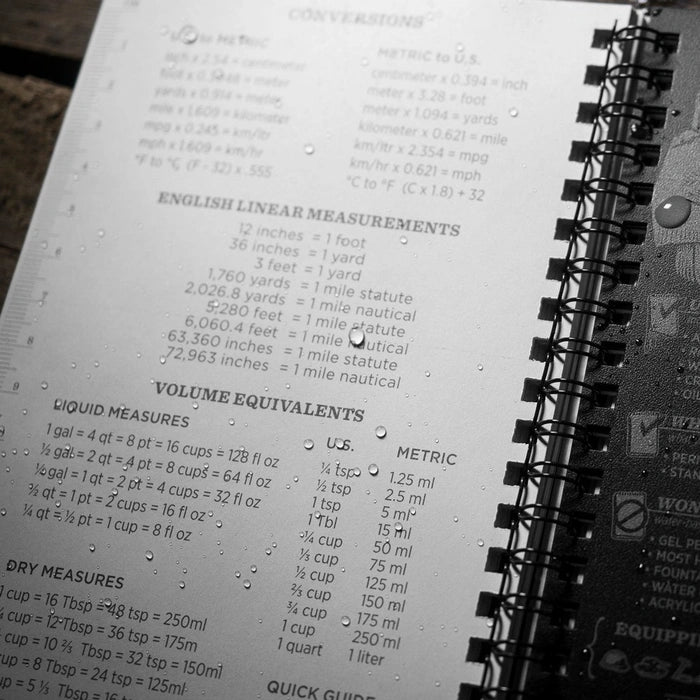 CONVERSIONS
to METRIC
inch x 2.54 = centimeter
foot x 0.3048 = meter
yards x 0.914 = meter
mile x 1.609 = kilometer
mpg x 0.245 = km/ltr
mph x 1.609 = km/hr
°F to °C (F - 32) x .555
METRIC to U.S.
centimeter x 0.394 = inch
meter x 3.28 = foot
meter x 1.094 = yards
kilometer x 0.621 = mile
km/ltr x 2.354 = mpg
km/hr x 0.621 = mph
°C to °F (C x 1.8) + 32
ENGLISH LINEAR MEASUREMENTS
12 inches = 1 foot
36 inches = 1 yard
3 feet = 1 yard
1,760 yards = 1 mile statute
2,026.8 yards = 1 mile nautical
5,280 feet = 1 mile statute
6,060.4 feet = 1 mile nautical
63,360 inches = 1 mile statute
72,963 inches = 1 mile nautical
VOLUME EQUIVALENTS
LIQUID MEASURES
1 gal = 4 qt = 8 pt = 16 cups = 128 fl oz
½ gal = 2 qt = 4 pt = 8 cups = 64 fl oz
¼ gal = 1 qt = 2 pt = 4 cups = 32 fl oz
½ qt = 1 pt = 2 cups = 16 fl oz
¼ qt = ½ pt = 1 cup = 8 fl oz
U.S. METRIC
¼ tsp 1.25 ml
½ tsp 2.5 ml
1 tsp 5 ml
1 Tbl 15 ml
¼ cup 50 ml
⅓ cup 75 ml
½ cup 125 ml
⅔ cup 150 ml
¾ cup 175 ml
1 cup 250 ml
1 quart 1 liter
DRY MEASURES
1 cup = 16 Tbsp = 48 tsp = 250ml
cup = 12 Tbsp = 36 tsp = 175m
cup = 10 ⅔ Tbsp = 32 tsp = 150ml
cup = 8 Tbsp = 24 tsp = 125ml
cup = 5 ⅓ Tbsp = 16
QUICK GUIDE
4
5
6
7
8
9
WON
• GEL PE
• MOST
• FOUNT
• WATER
• ACRYL
EQUIPPE